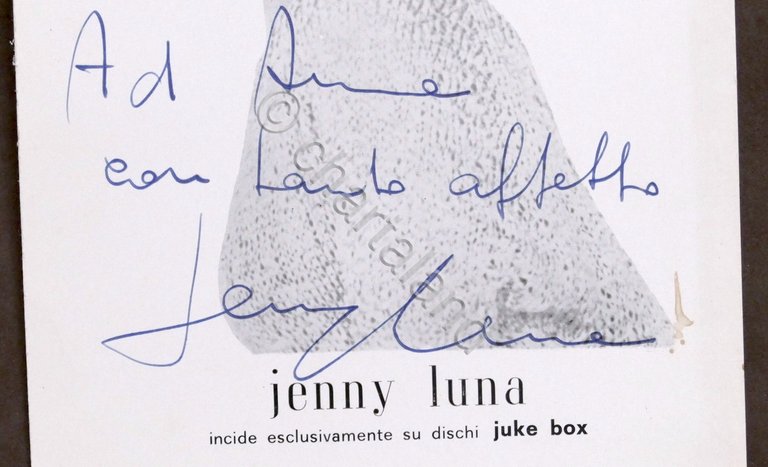 Ad Anna
con tanto affetto
Jenny Luna
© chartaland
jenny luna
incide esclusivamente su dischi juke box